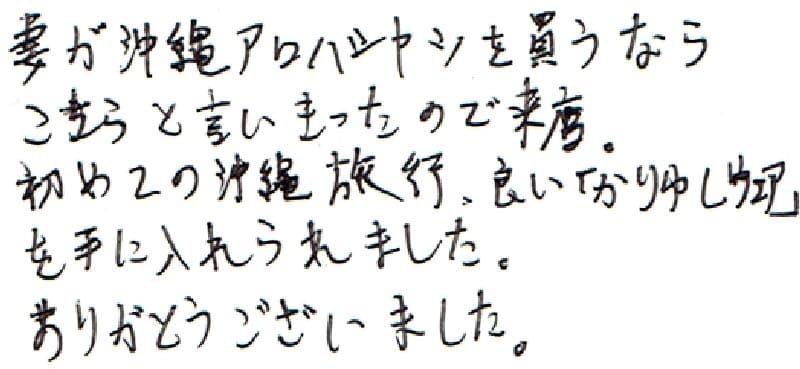 妻が沖縄アロハシャツを買うなら
こちらと言いきったので来店。
初めての沖縄旅行、良い「かりゆしウェア」
を手に入れられました。
ありがとうございました。